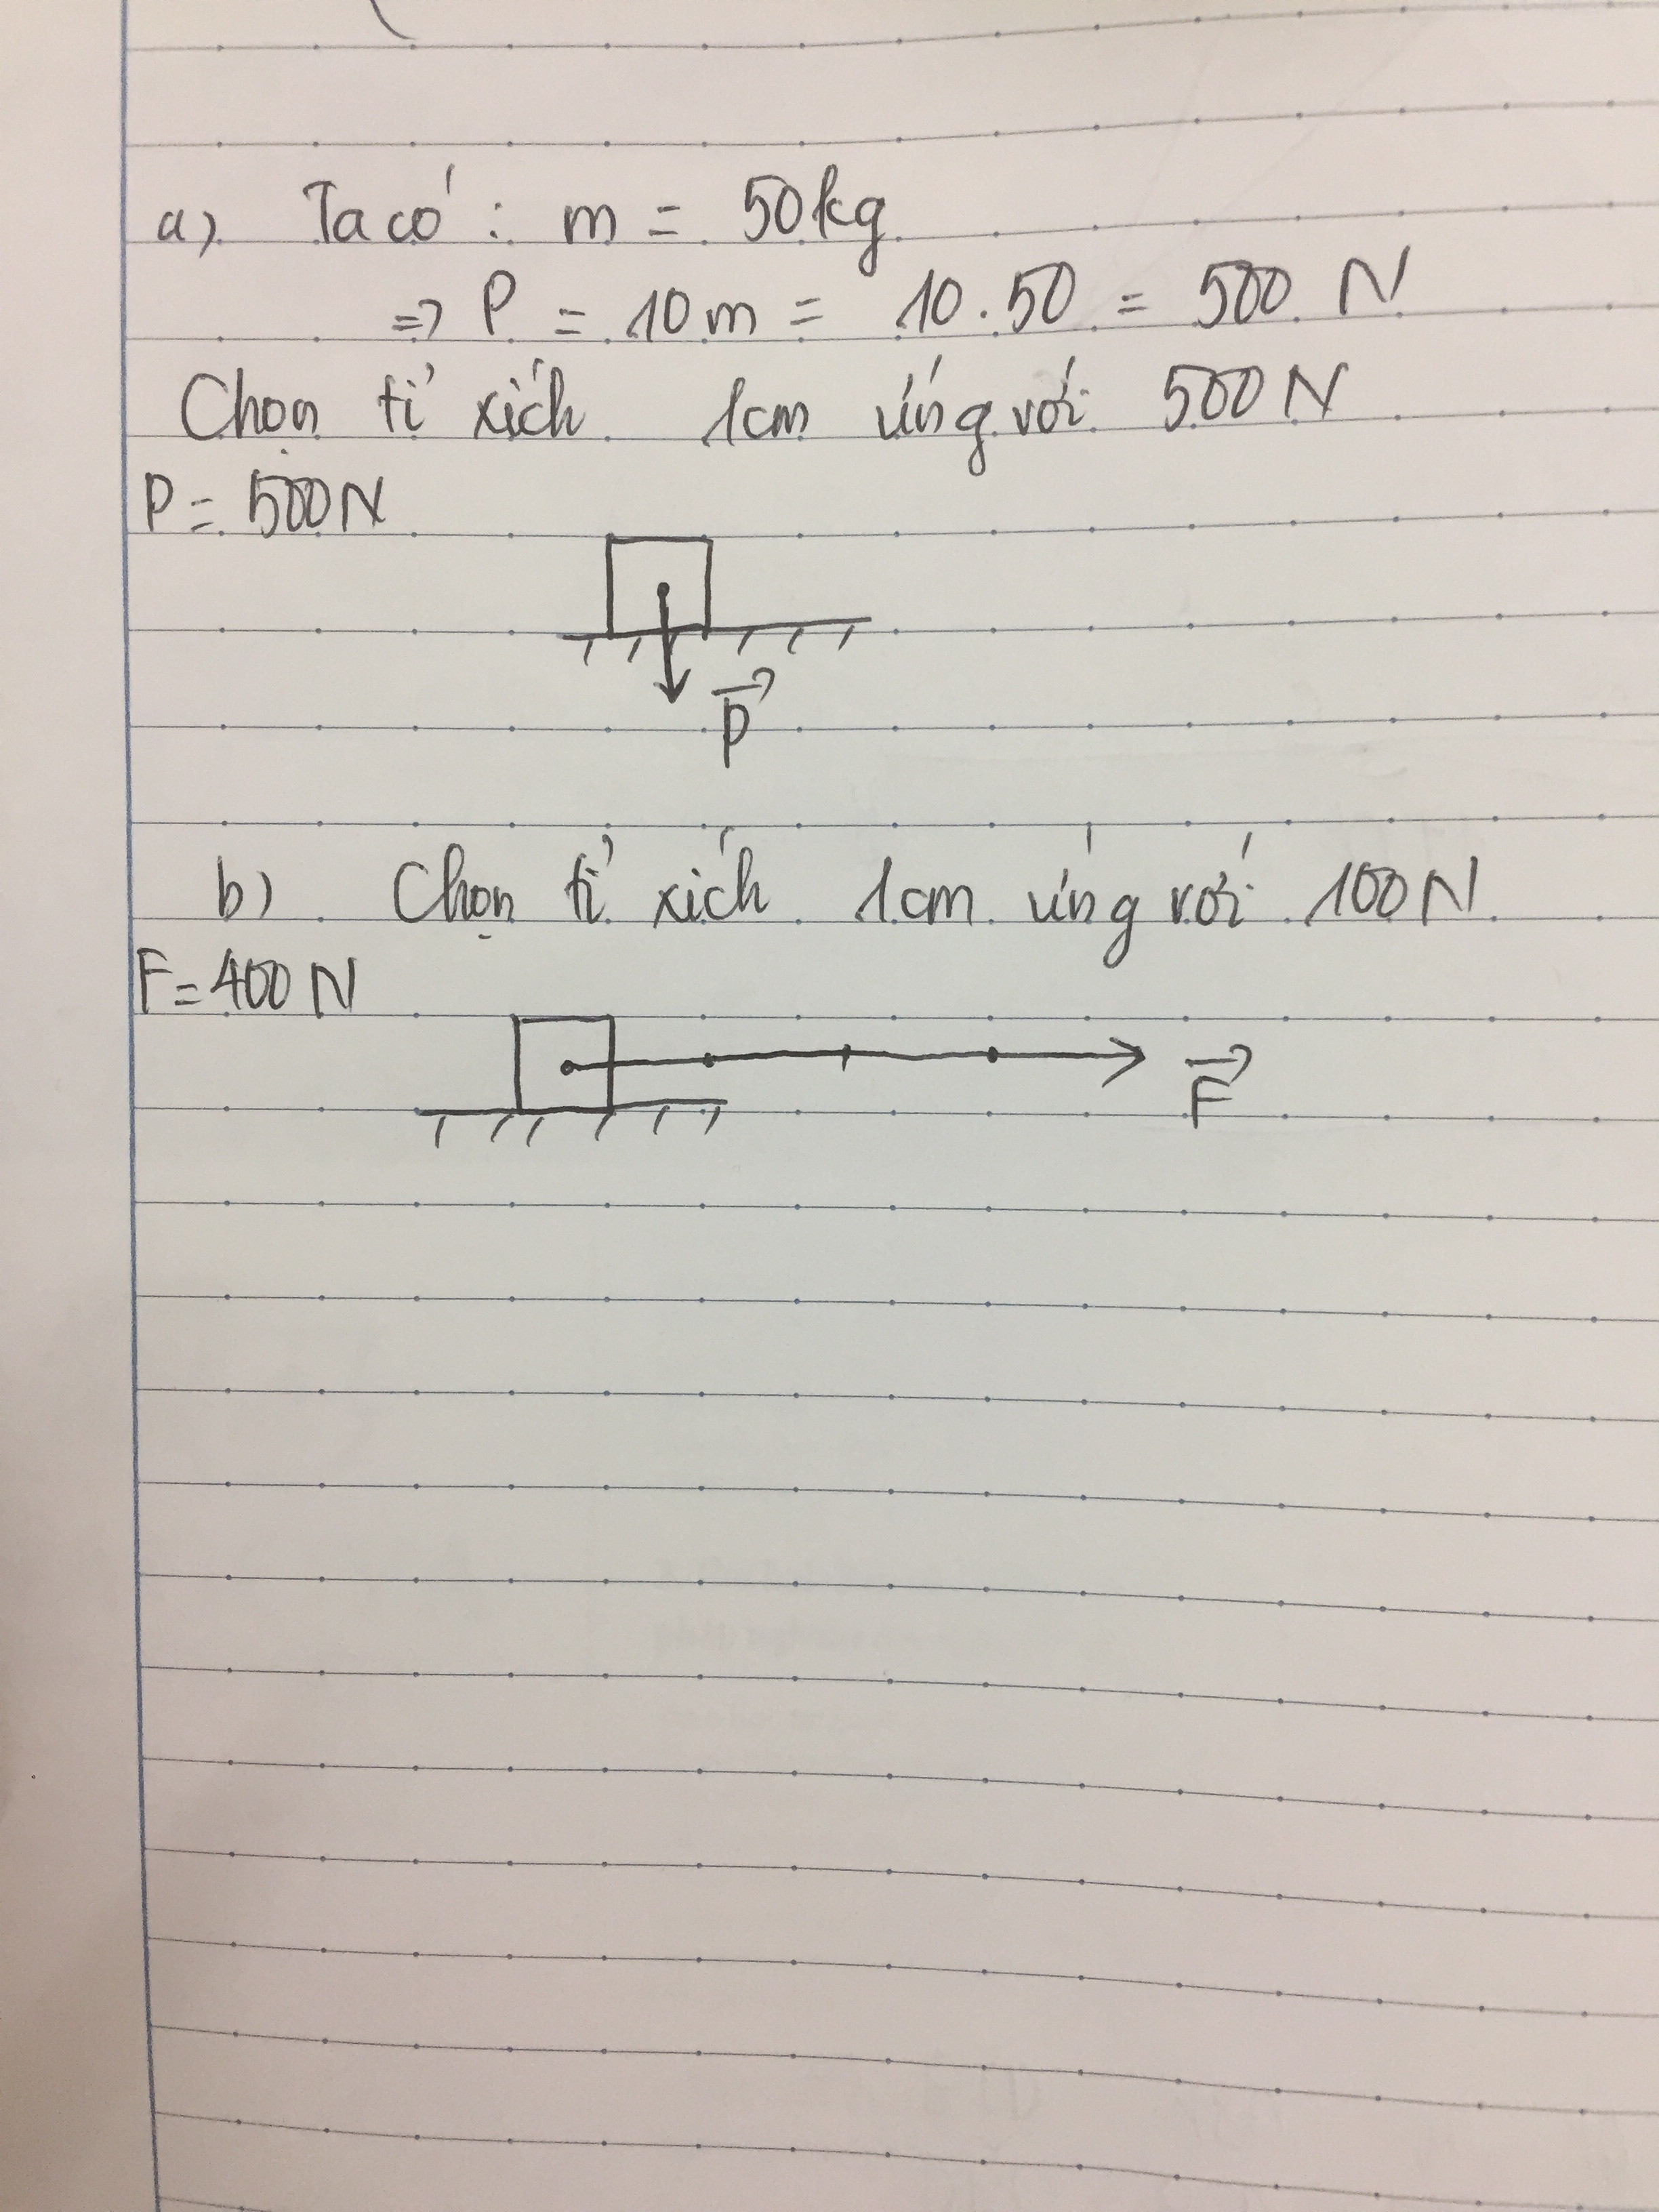 a) Ta có : m = 50kg
=> P = 10m = 10.50 = 500 N
Chọn tỉ xích 1cm ứng với 500N
P = 500N
P
b) Chọn tỉ xích 1cm ứng với 100N
F = 400 N
F